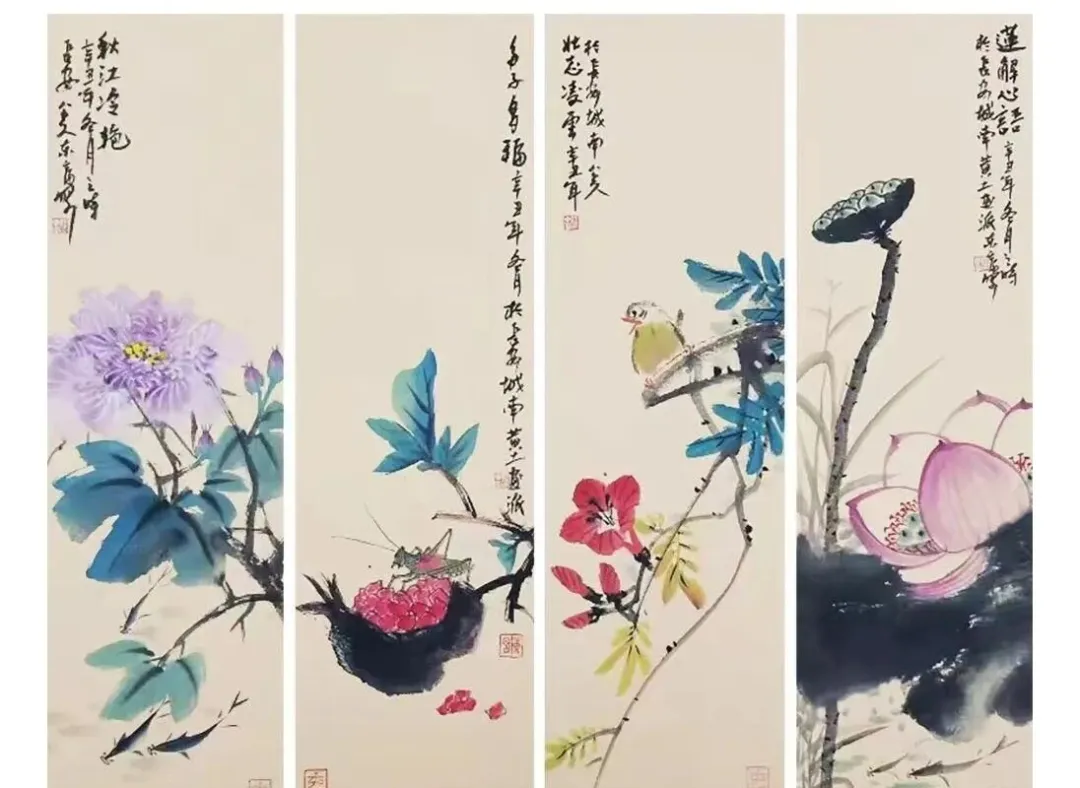 秋江冷艳
辛丑年冬月之时
长安
多子多福 辛丑年冬月于长安城南黄土画派
壮志凌云 辛丑年
于长安城南
莲解心语 辛丑年冬月之时
于长安城南黄土画派